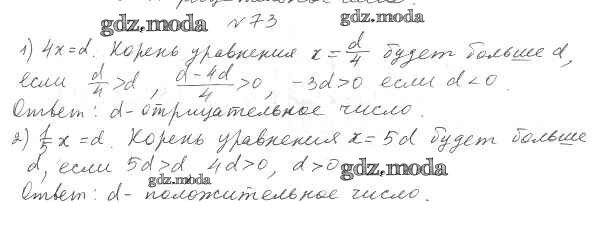 gdz.moda №73 gdz.moda
1) 4x=d. Корень уравнения x = d/4 будет больше d,
если d/4 > d, (d-4d)/4 > 0, -3d>0 если d<0.
Ответ: d - отрицательное число.
2) 1/5 x = d. Корень уравнения x = 5d будет больше
d, если 5d>d 4d>0, d>0 gdz.moda
gdz.moda
Ответ: d - положительное число.